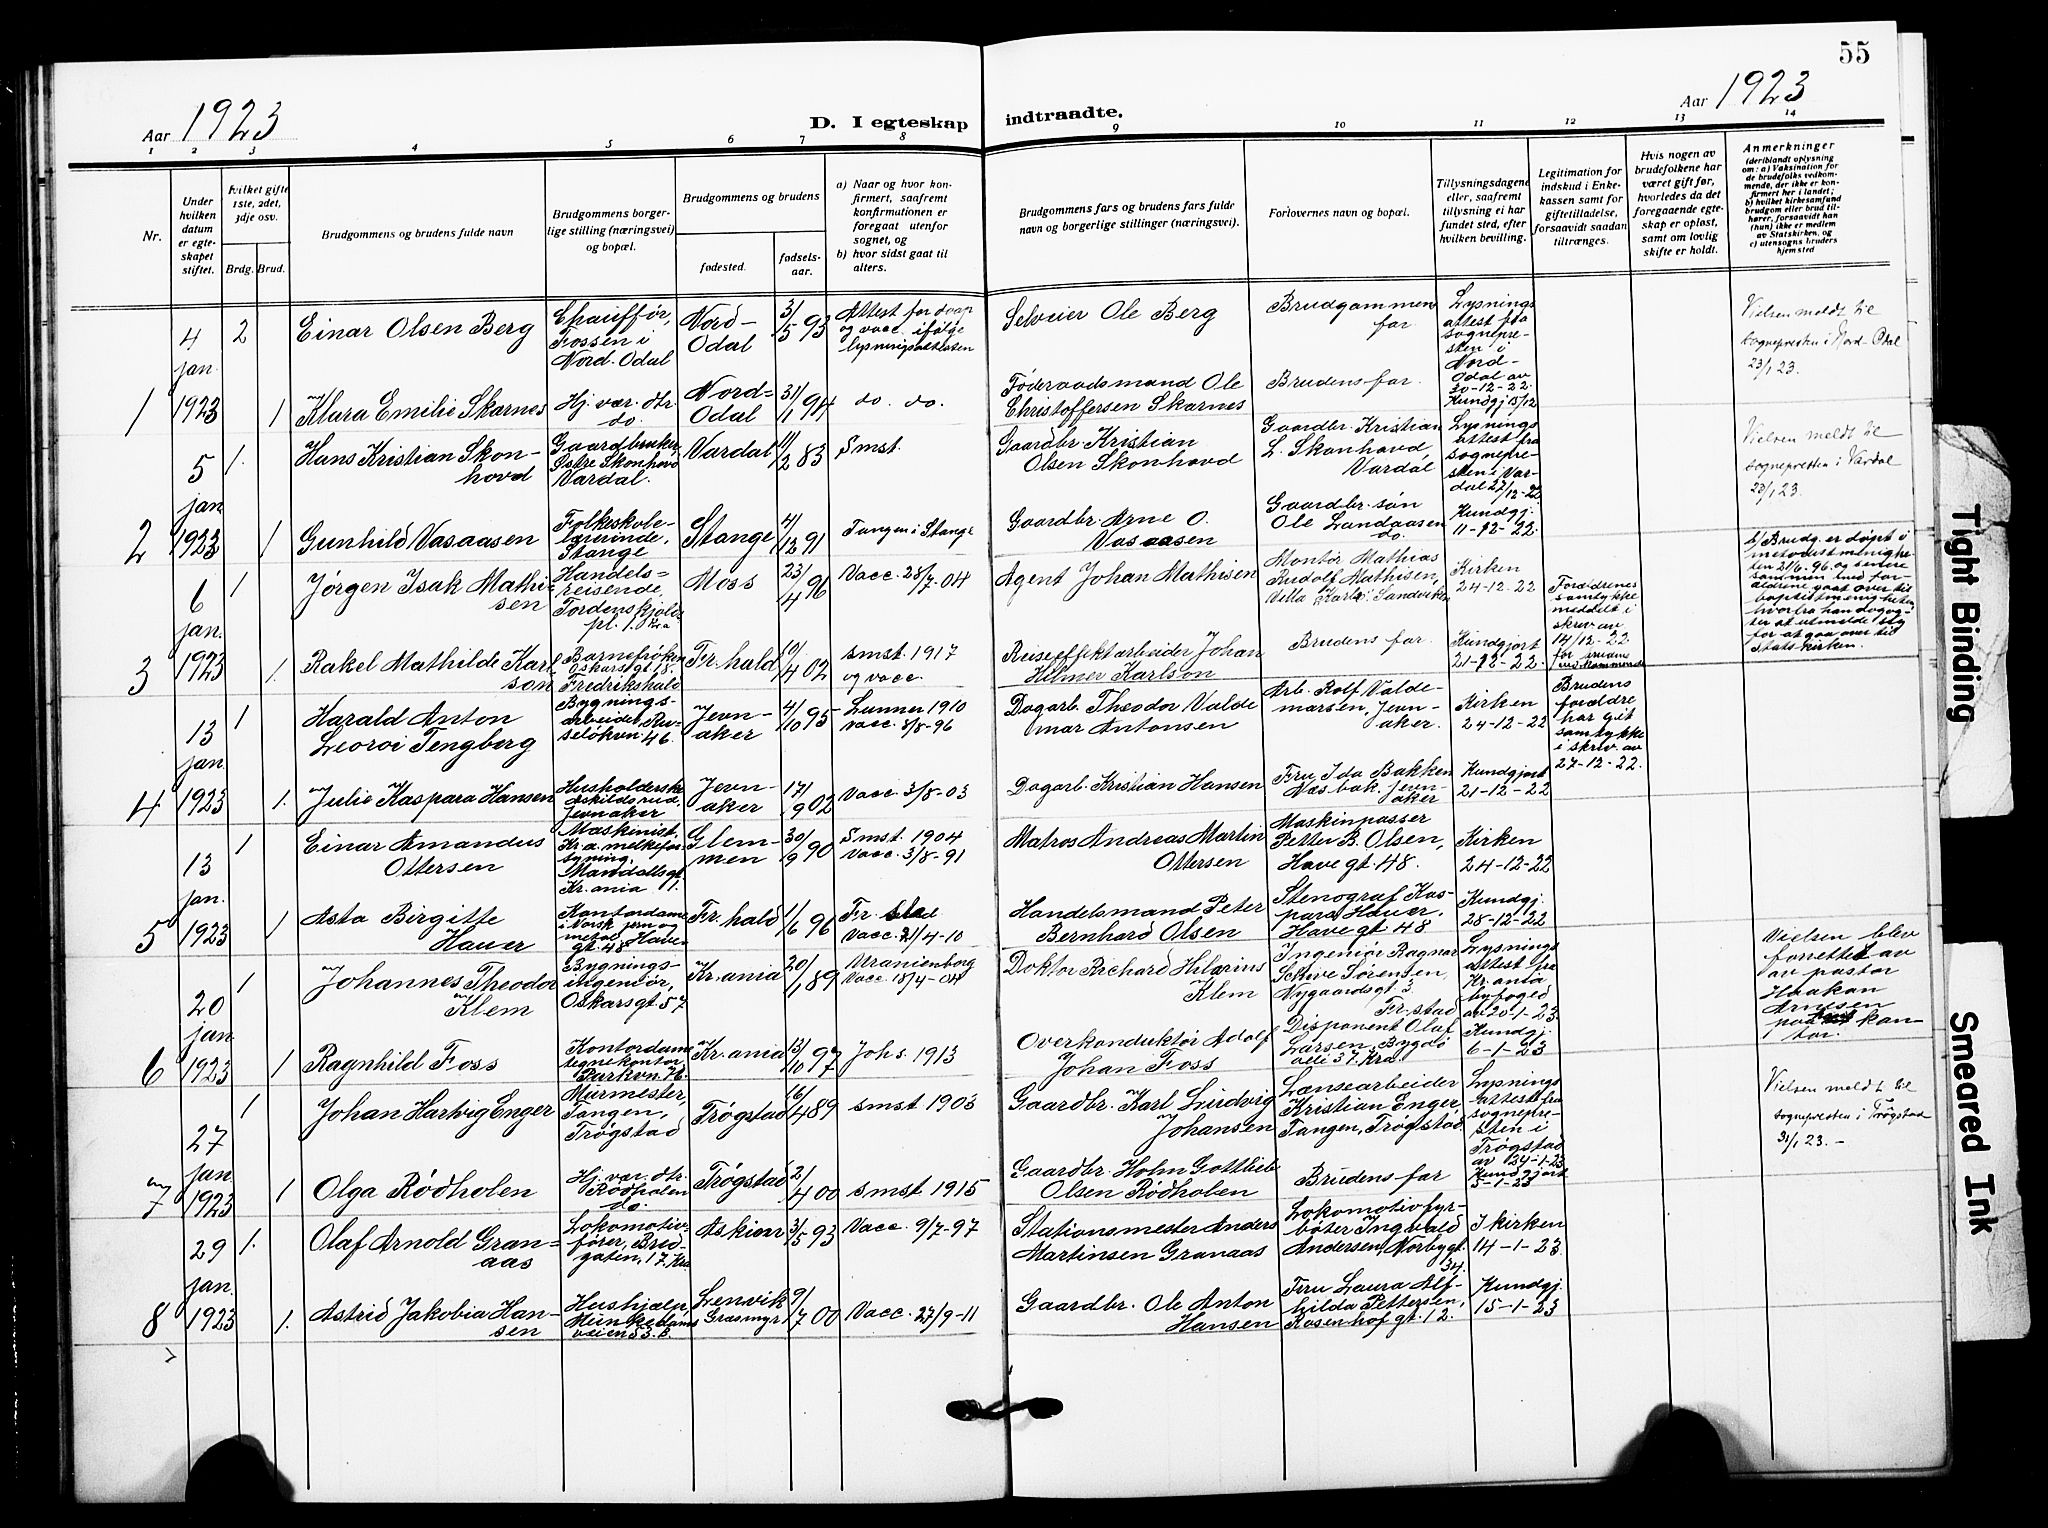 55
Aar 1923
D. I egteskap indtraadte.
Aar 1923
1 2 3 4 5 6 7 8 9 10 11 12 13 14
Nr.
Under hvilken datum er egteskapet stiftet.
Hvilket gifte 1ste, 2det, 3dje osv.
Brdg. Brud.
Brudgommens og brudens fulde navn
Brudgommens borgerlige stilling (næringsvei) og bopæl.
Brudgommens og brudens
fødested.
fødselsaar.
a) Naar og hvor konfirmert, saafremt konfirmationen er foregaat utenfor sognet, og
b) hvor sidst gaat til alters.
Brudgommens fars og brudens fars fulde navn og borgerlige stillinger (næringsvei).
Forlovernes navn og bopæl.
Tillysningsdagene eller, saafremt tillysning ei har fundet sted, efter hvilken bevilling.
Legitimation for indskud i Enkekassen samt for giftetilladelse, forsaavidt saadan tiltrænges.
Hvis nogen av brudefolkene har været gift før, hvorledes da det foregaaende egteskap er opløst, samt om lovlig skifte er holdt.
Anmerkninger
(deriblandt oplysning om: a) Vaksination for de brudefolks vedkommende, der ikke er konfirmert her i landet; b) hvilket kirkesamfund brudgom eller brud tilhører, forsaavidt han (hun) ikke er medlem av Statskirken, og c) utensogns bruders hjemsted
1
4 jan. 1923
2
Einar Olsen Berg
Chauffør, Fossen i Nord-Odal
Nord-Odal
3/5 93
Attest for daap og vacc. ifølge lysningsattesten
Selveier Ole Berg
Brudgommens far
Lysningsattest fra sognepresten i Nord-Odal av 30-12-22.
Vielsen meldt til sognepresten i Nord-Odal 23/1 23.
1
Klara Emilie Skarnes
Hj. vær. dtr. do.
Nord-Odal
31/1 94
do. do.
Føderaadsmand Ole Christoffersen Skarnes
Brudens far.
Kundgj 15/12
2
5 jan 1923
1.
Hans Kristian Skonhovd
Gaardbruker, Østre Skonhovd Vardal.
Vardal
11/2 83
Smst.
Gaardbr. Kristian Olsen Skonhovd
Gaardbr. Kristian L. Skonhovd, Vardal
Lysningsattest fra sognepresten i Vardal 27/12-22
Vielsen meldt til sognepresten i Vardal 23/1 23.
1
Gunhild Vasaasen
Folkeskolelærerinde, Stange
Stange
4/12 91
Tangen i Stange
Gaardbr. Arne O. Vasaasen
Gaardbr. søn Ole Landaasen do.
Kundgj. 11-12-22.
3
6 jan. 1923
1
Jørgen Isak Mathisen
Handelsreisende, Tordenskjolds pl. 1. Kra
Moss
23/4 96
Vacc. 28/7-04
Agent Johan Mathisen
Montør Mathias Rudolf Mathisen, Villa "Karlo", Sandviken
Kirken 24-12-22
Forældrenes samtykke meddelt i skriv av 14/12-22. for brudens vedkommende
b/ Brudg. er døpt i metodistmenigheten 21/6.96. og senere sammen med forældrene gaat over til baptistmenigheten, hvorfra han dog agter at utmelde sig for at gaa over til Statskirken.
1.
Rakel Mathilde Karlson
Barnefrøken Oskarsgt. 18. Fredrikshald
Fr.hald
10/4 02
smst. 1917 og vacc.
Reiseeffektarbeider Johan Hilmer Karlson
Brudens far.
Kundgjort 21-12-22.
4
13 jan. 1923
1
Harald Anton Leoroi Tengberg
Bygningsarbeider, Ruseløkvn. 46.
Jevnaker
4/10 95
Lunner 1910 vacc. 8/8-96
Dagarb. Theodor Valdemar Antonsen
Arb. Rolf Valdemarsen, Jevnaker.
Kirken 24-12-22
Brudens forældre har git samtykke i skriv. av 27-12-22.
1.
Julie Kaspara Hansen
Husholderske Askildsrud, Jevnaker
Jevnaker
17/9 02
Vacc. 3/8-03
Dagarb. Kristian Hansen
Fru Ida Bakken Næsbak. Jevnaker
Kundgjort 21-12-22
5
13 jan. 1923
1
Einar Amandus Ottersen
Maskinist, Kr.a. melkeforsyning, Mandallsgt. Kr.ania 11.
Glemmen
30/9 90
Smst. 1904 Vacc. 3/8-91
Matros Andreas Martin Ottersen
Maskinpasser Petter B. Olsen, Havegt. 48.
Kirken 24-12-22
1
Asta Birgitte Hauer
Kontordame i Norsk jern og metal, Havegt. 48
Fr.hald
1/6 96
Fr. stad Vacc. 21/4-10
Handelsmand Peter Bernhard Olsen
Stenograf Kaspara Hauer, Havegt. 48
Kundgj. 28-12-22
6
20 jan 1923
1
Johannes Theodor Klem
Bygningsingeniør, Oskarsgt. 57
Kr.ania
20/1 89
Uranienborg Vacc. 18/4-04
Doktor Richard Hilarius Klem
Ingeniør Ragnar Schive Sørensen, Nygaardsgt. 3 Fr.stad
Lysningsattest fra Kr.ania byfoged av 20-1-23.
Vielsen blev forrettet av av pastor Haakan Arnesen paa kantor.
1
Ragnhild Foss
Kontordame tegnekontor Parkvn.
Kr.ania
13/10 97
Johs. 1913
Overkonduktør Adolf Johan Foss
Disponent Olaf Larsen, Bygdø alle 37. Kra.
Kundgj. 6-1-23
7
27 jan 1923
1
Johan Hartvig Enger
Murmester, Tangen, Trøgstad
Trøgstad
16/4 89
smst 1903
Gaardbr. Karl Ludvig Johansen
Lænsearbeider Kristian Enger Tangen, Trøgstad
Lysningsattest fra sognepresten i Trøgstad
Vielsen meldt til sognepresten i Trøgstad 31/1 23.-
1
Olga Rødholen
Hj. vær. dtr. Rødholen do.
Trøgstad
2/4 00
smst 1915
Gaardbr. Holm Gottlieb Olsen Rødholen
Brudens far
Kundgjort 5-1-23
8
29 jan. 1923
1.
Olaf Arnold Granaas
Lokomotivfører, Brugaten, 17. Kra
Askim
3/5 93
Vacc. 9/7-97
Stationsmester Anders Martinsen Granaas
Lokomotivfyrbøter Ingvald Andersen, Norbygt. 34.
I kirken 14-1-23.
1.
Astrid Jakobia Hansen
Hushjælp, Munkedamsveien 53. B.
Lenvik Græsmyr
9/7 00
Vacc. 27/9-11
Gaardbr. Ole Anton Hansen
Fru Laura Alfhilda Pettersen, Rosenhofgt. 12.
Kundgj. 15-1-23
Tight Binding
Smeared Ink